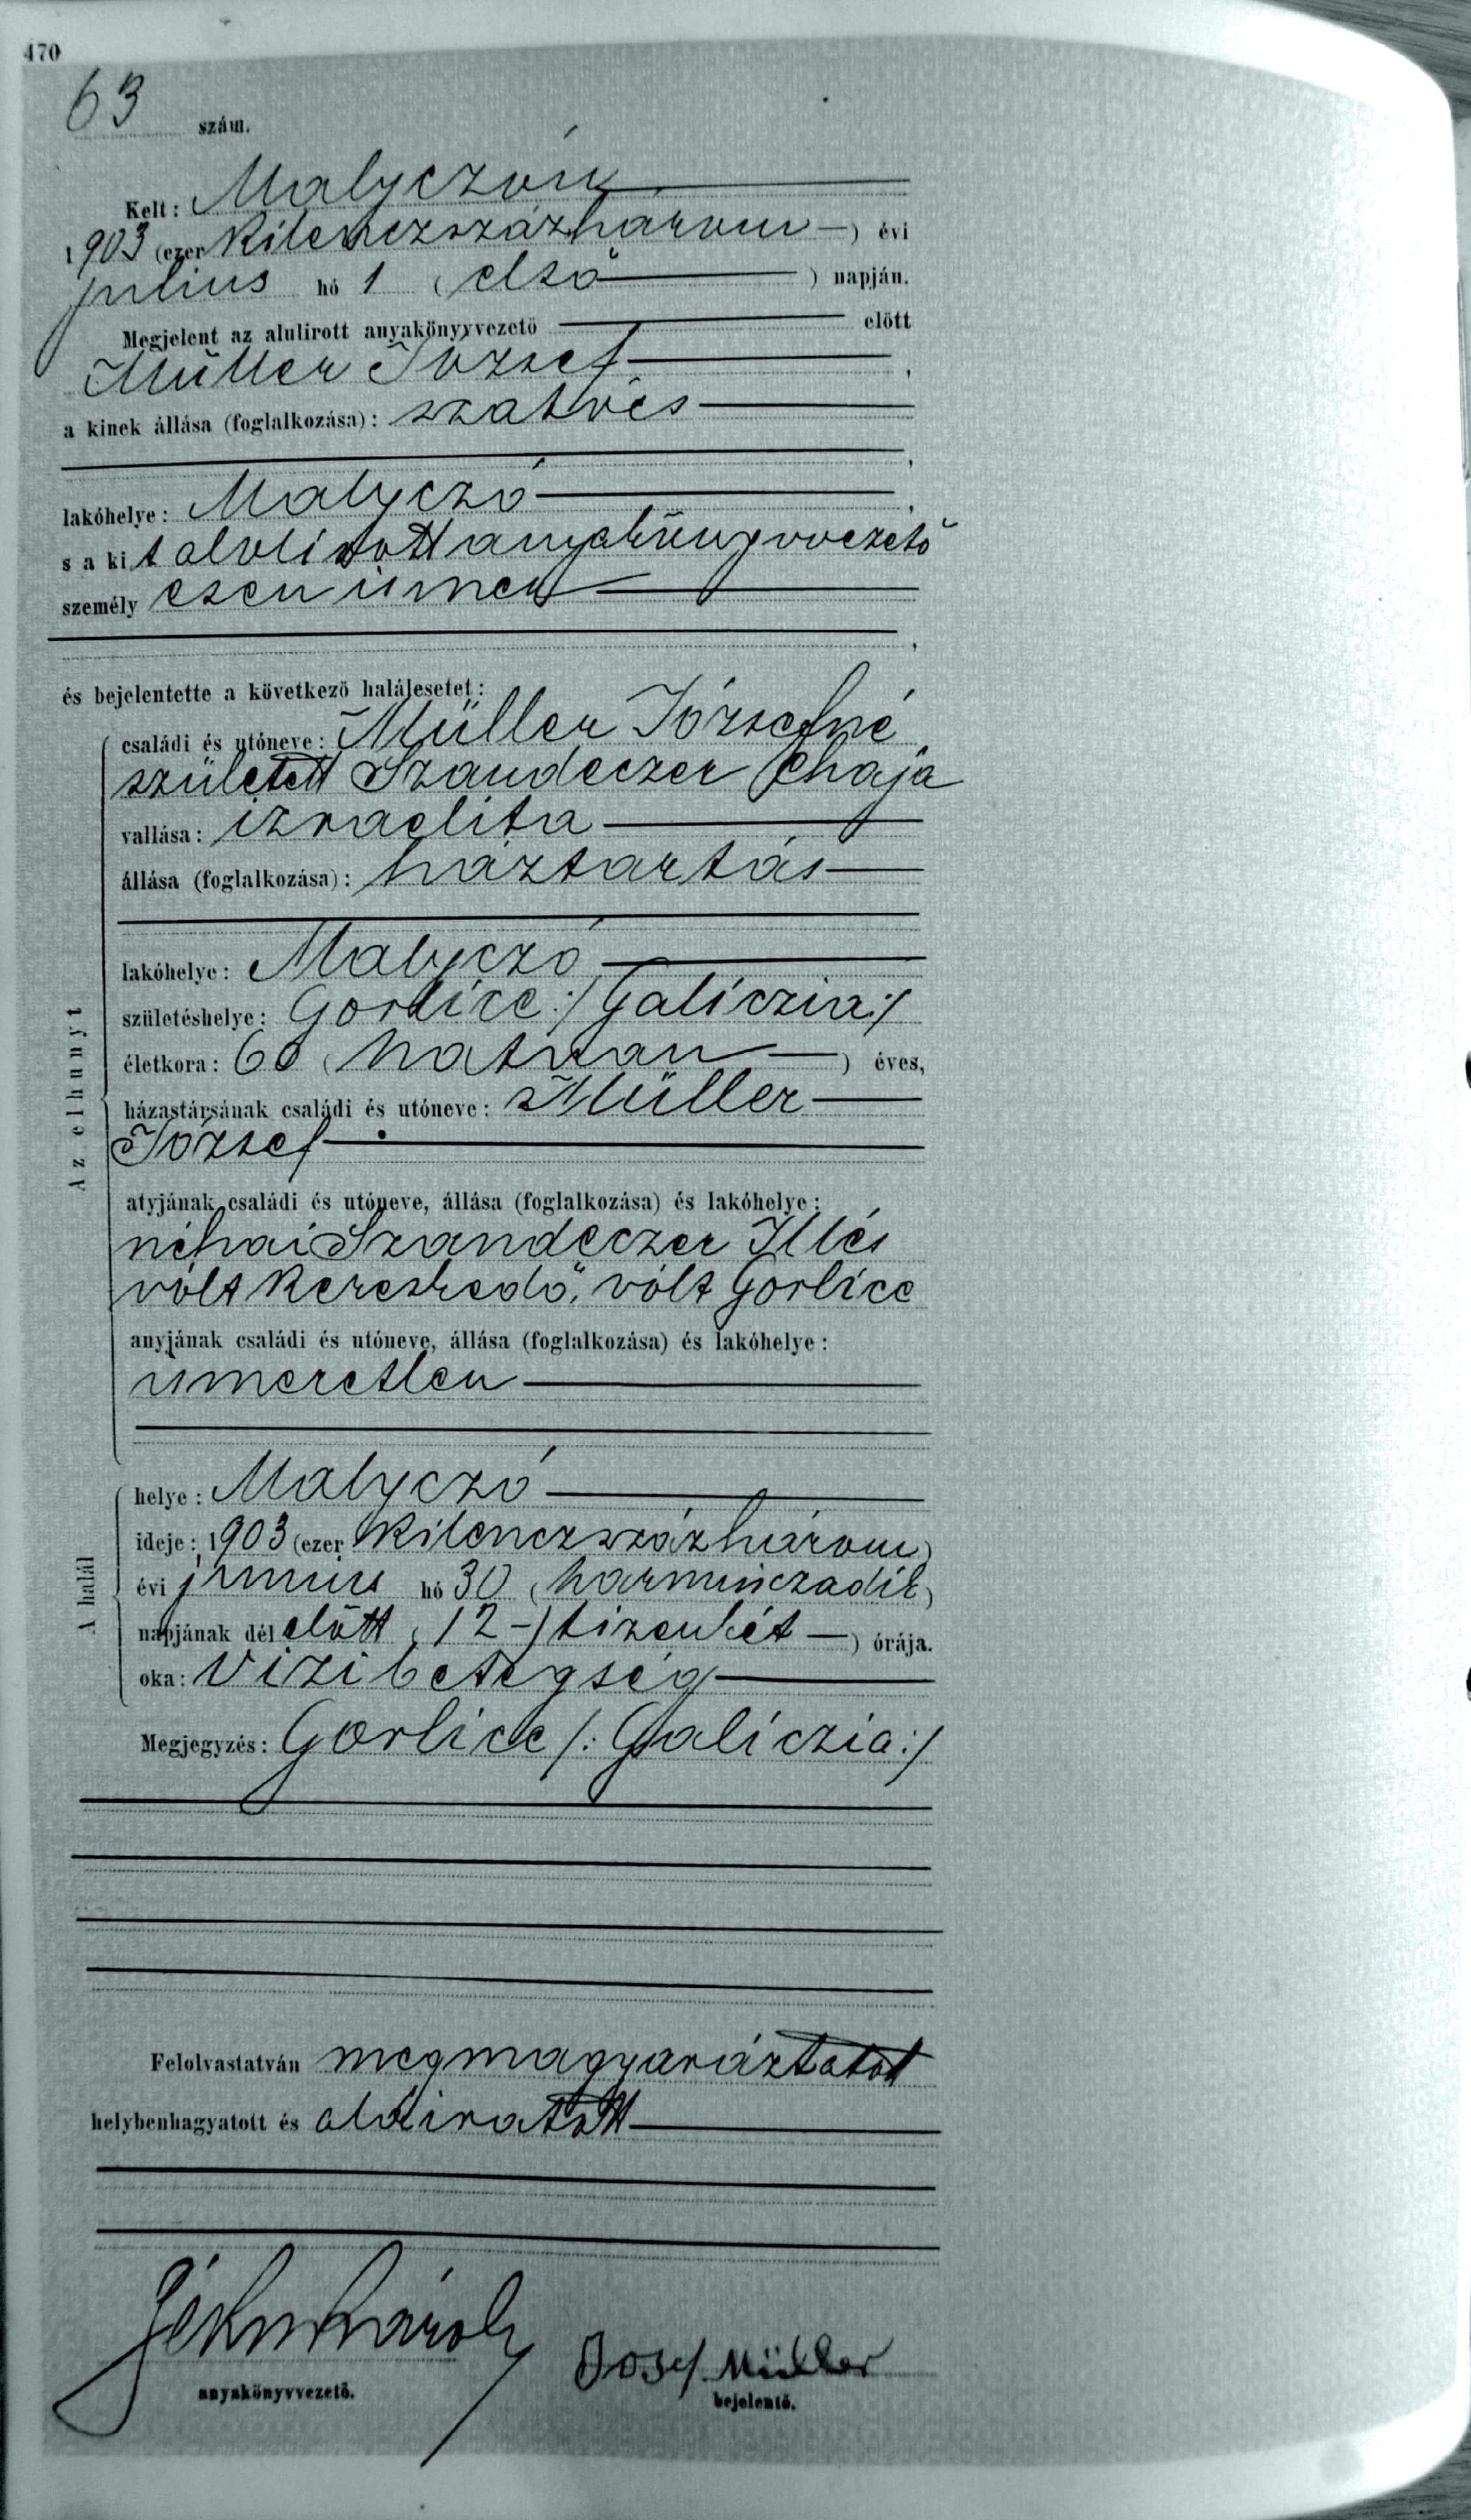 470
63 szám.
Kelt: Malyczón
1903 (ezer kilenczszázhárom —) évi
julius hó 1 (első) napján.
Megjelent az alulirott anyakönyvvezető előtt
Müller József,
a kinek állása (foglalkozása): szatócs
,
lakóhelye: Malyczó,
s a kit alulirott anyakönyvvezető
személyesen ismer
,
és bejelentette a következő halálesetet:
Az elhunyt
családi és utóneve: Müller Józsefné
született Szandeczer Chaja
vallása: izraelita
állása (foglalkozása): háztartás
lakóhelye: Malyczó
születéshelye: Gorlice :/Galiczia:/
életkora: 60 (hatvan —) éves,
házastársának családi és utóneve: Müller
József
atyjának családi és utóneve, állása (foglalkozása) és lakóhelye:
néhai Szandeczer Illés
vólt kereskedő, vólt Gorlice
anyjának családi és utóneve, állása (foglalkozása) és lakóhelye:
ismeretlen
A halál
helye: Malyczó
ideje: 1903 (ezer kilenczszázhárom)
évi junius hó 30 (harminczadik)
napjának délelőtt (12 —) tizenkét —) órája.
oka: Vizibetegség
Megjegyzés: Gorlice /: Galiczia:/
Felolvastatván megmagyaráztatott
helybenhagyatott és aláiratott
Károly Josef Müller
anyakönyvvezető. bejelentő.